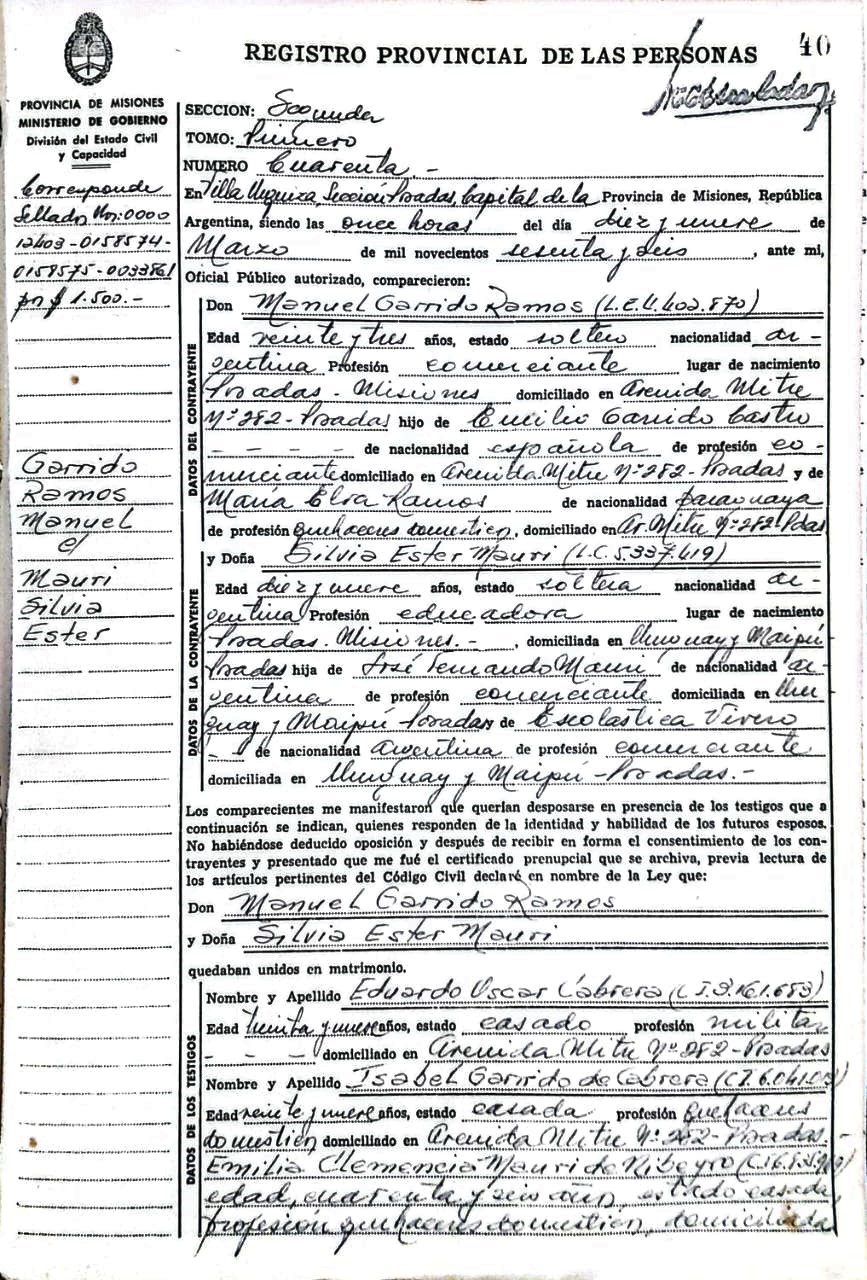 REGISTRO PROVINCIAL DE LAS PERSONAS
40
PROVINCIA DE MISIONES
MINISTERIO DE GOBIERNO
División del Estado Civil
y Capacidad
Corresponde
Sellados Nos: 0000
12403-0158574-
0158575-0033861
por $ 1.500.-
Garrido
Ramos
Manuel
c/
Mauri
Silvia
Ester
SECCION: Segunda
TOMO: Primero
NUMERO Cuarenta.-
En Villa Urquiza, Sección Posadas, Capital de la Provincia de Misiones, República
Argentina, siendo las once horas del día diez y nueve de
Marzo de mil novecientos sesenta y seis, ante mi,
Oficial Público autorizado, comparecieron:
DATOS DEL CONTRAYENTE
Don Manuel Garrido Ramos (L.E. 4.402.870)
Edad veinte y tres años, estado soltero nacionalidad ar-
gentina Profesión comerciante lugar de nacimiento
Posadas - Misiones domiciliado en Avenida Mitre
Nº 282 - Posadas hijo de Emilio Garrido Castro
- - - - de nacionalidad española de profesión co-
merciante domiciliado en Avenida Mitre Nº 282 - Posadas y de
María Elva Ramos de nacionalidad paraguaya
de profesión quehaceres domésticos, domiciliado en Av. Mitre Nº 282 Pdas
DATOS DE LA CONTRAYENTE
y Doña Silvia Ester Mauri (L.C. 5.337.419)
Edad diez y nueve años, estado soltera nacionalidad ar-
gentina Profesión educadora lugar de nacimiento
Posadas. Misiones.-, domiciliada en Uruguay y Maipú
Posadas hija de José Fernando Mauri de nacionalidad ar-
gentina de profesión comerciante domiciliada en Uru-
guay y Maipú Posadas y de Escolástica Vivero
- - de nacionalidad argentina de profesión comerciante
domiciliada en Uruguay y Maipú - Posadas.-
Los comparecientes me manifestaron que querían desposarse en presencia de los testigos que a
continuación se indican, quienes responden de la identidad y habilidad de los futuros esposos.
No habiéndose deducido oposición y después de recibir en forma el consentimiento de los con-
trayentes y presentado que me fué el certificado prenupcial que se archiva, previa lectura de
los artículos pertinentes del Código Civil declaré en nombre de la Ley que:
Don Manuel Garrido Ramos
y Doña Silvia Ester Mauri
quedaban unidos en matrimonio.
DATOS DE LOS TESTIGOS
Nombre y Apellido Eduardo Oscar Cabrera (C.I. 3.161.683)
Edad treinta y nueve años, estado casado profesión militar
- - - domiciliado en Avenida Mitre Nº 282 - Posadas
Nombre y Apellido Isabel Garrido de Cabrera
Edad veinte y nueve años, estado casada profesión quehaceres
domésticos domiciliado en Avenida Mitre Nº 282 - Posadas.-
Emilia Clemencia Mauri de Ribeyro
edad, cuarenta y seis años, estado casada,
profesión quehaceres domésticos, domiciliada